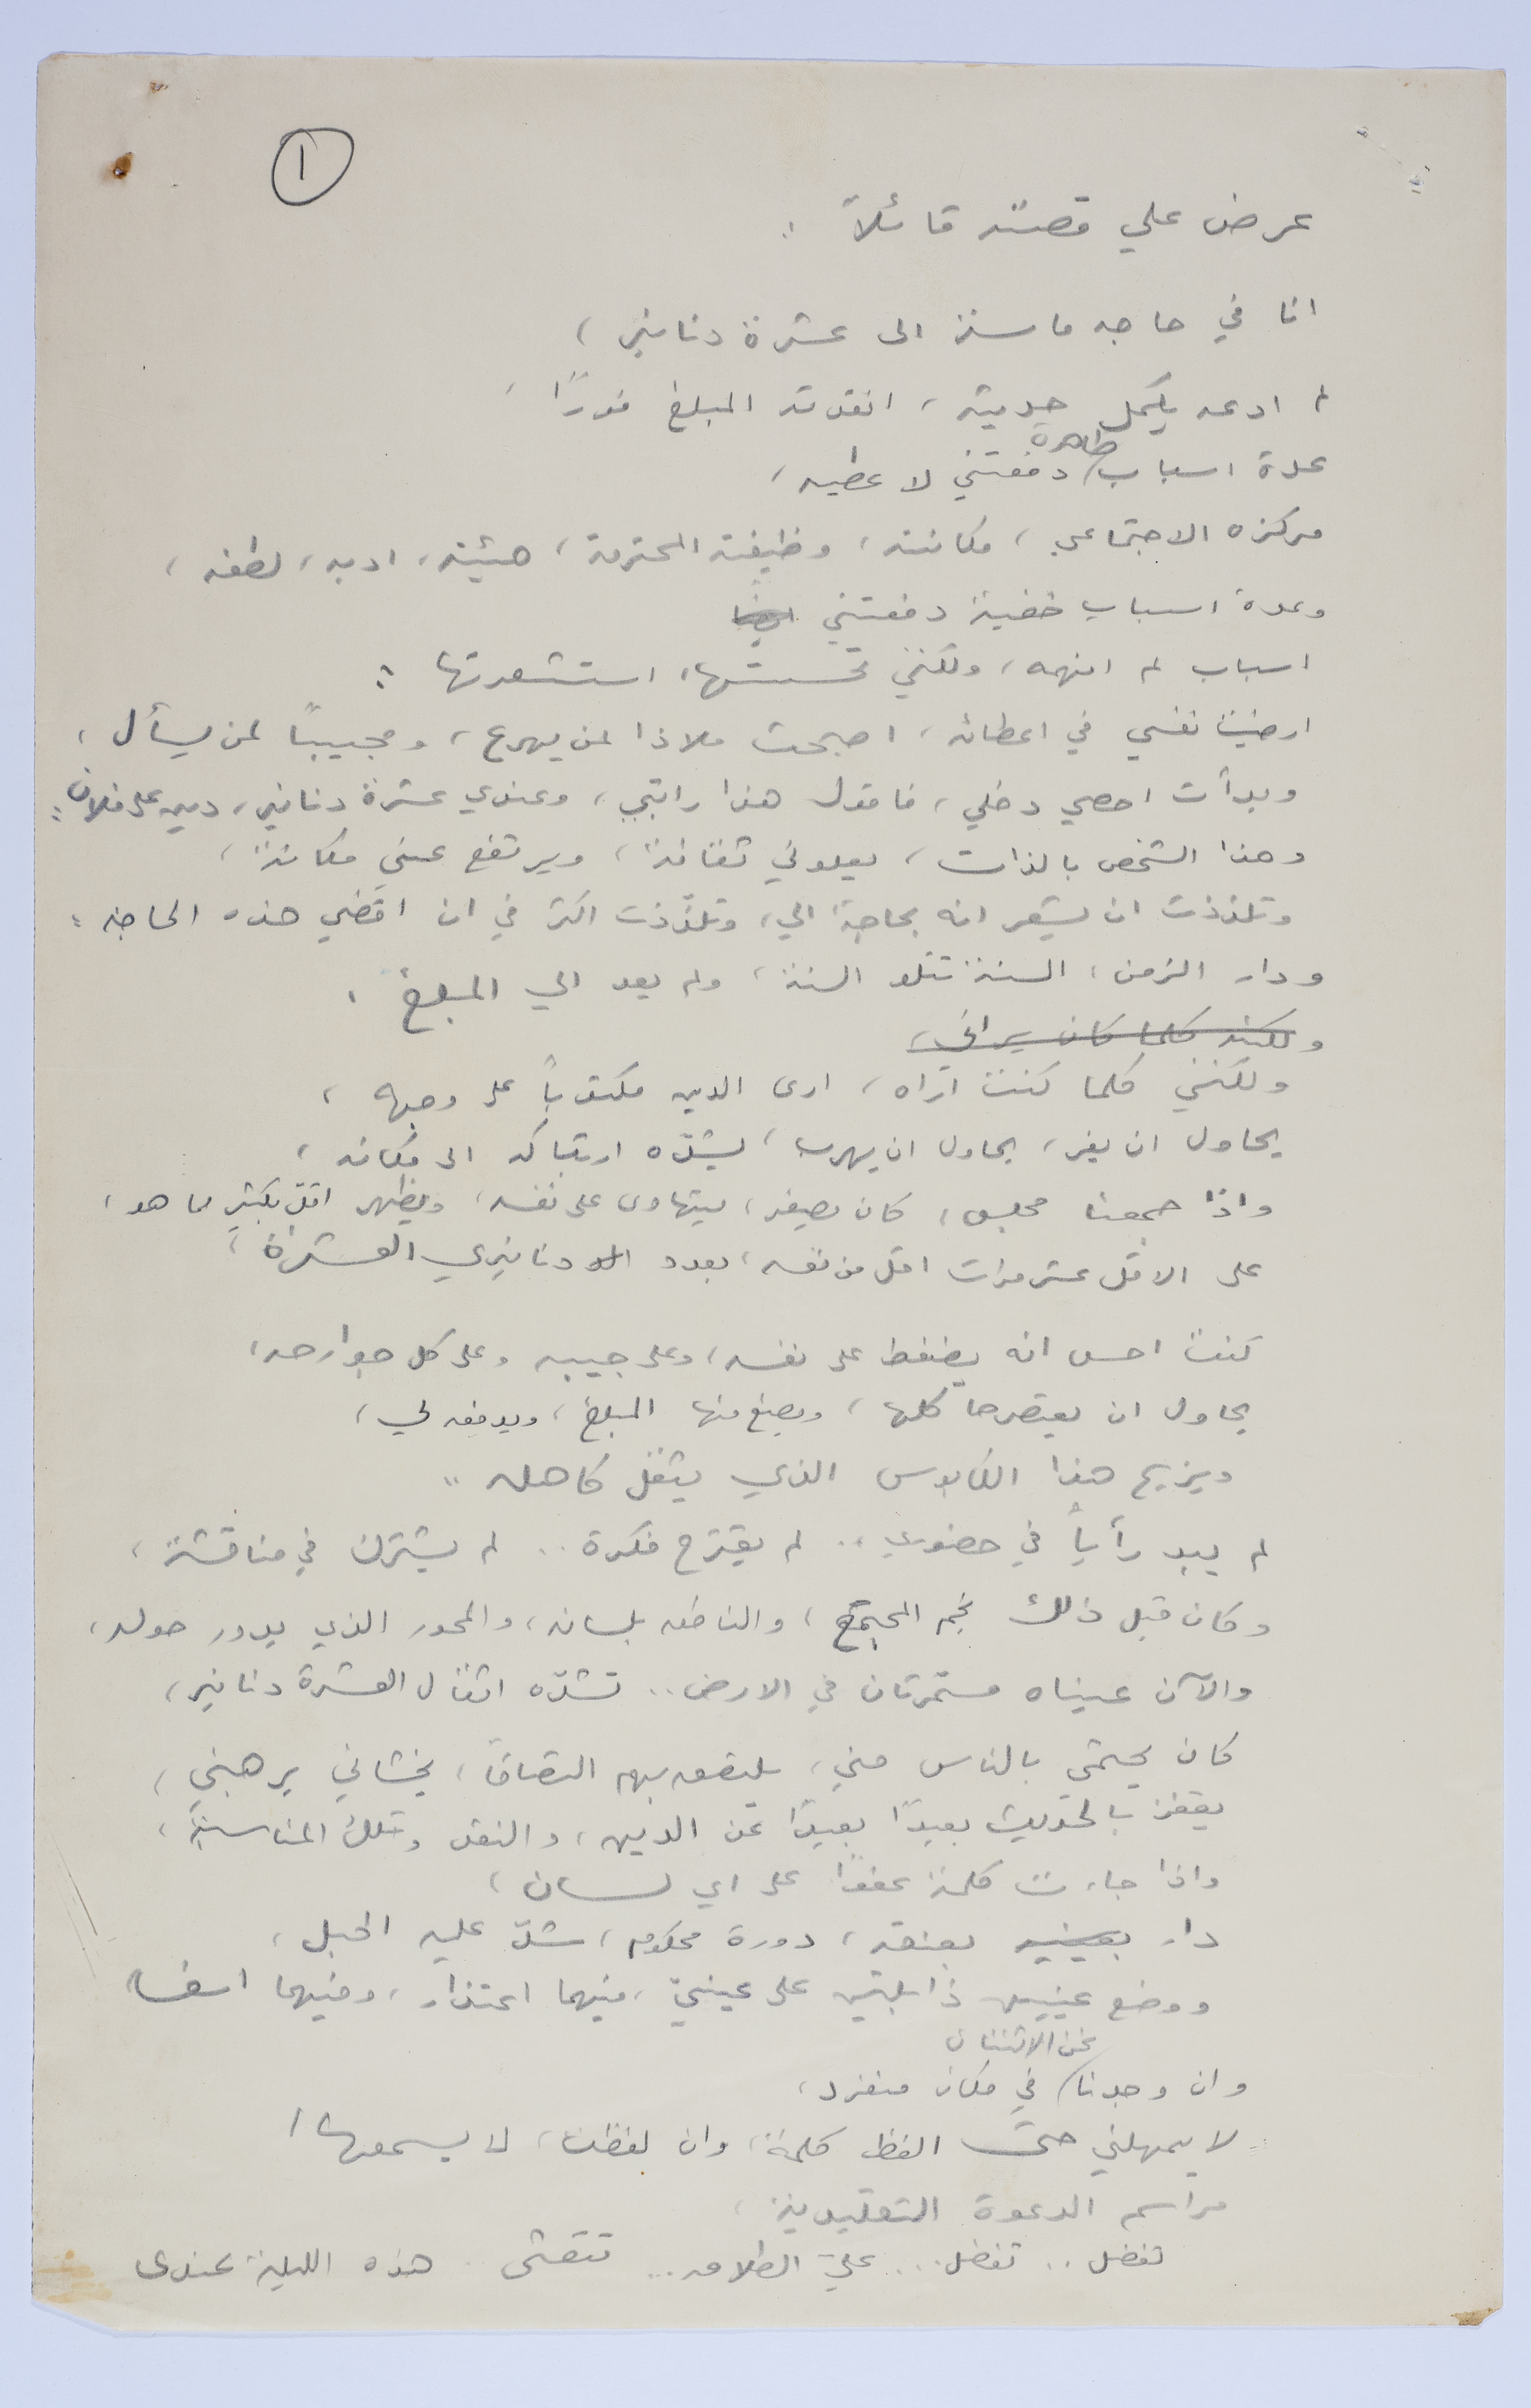 ١
عرض علي قصته قائلاً :
انا في حاجه ماسة الى عشرة دنانير ،
لم ادعه يكمل حديثه ، انقدته المبلغ فوراً ،
عدة اسباب ظاهرة دفعتني لاعطيه ،
مركزه الاجتماعي ، مكانته ، وظيفته المحترمة ، هيئته ، ادبه ، لطفه ،
وعدة اسباب خفية دفعتني
اسباب لم افهمه ، ولكنني تحسستها ، استشعرتها :
ارضيت نفسي في اعطائه ، اصبحت ملاذا لمن يهرع ، ومجيباً لمن يسأل ،
وبدأت احصي دخلي ، فاقول هذا راتبي ، وعندي عشرة دنانير ، دين على فلان :
وهذا الشخص بالذات ، يعلوني ثقافة ، ويرتفع عني مكانة ،
وتلذذت ان يشعر انه بحاجة الي ، وتلذّذت اكثر في ان اقضي هذه الحاجه :
ودار الزمن ، السنة تتلو السنة ، ولم يعد الي المبلغ ،
ولكنه كلما كان يراني ،
ولكنني كلما كنت أراه ، ارى الدين مكتوباً على وجهه ،
يحاول ان يفر ، يحاول ان يهرب ، يشدّه ارتباكه الى مكانه ،
واذا جمعنا مجلس ، كان يصغر ، يتهاوى على نفسه ، ويظهر اقل بكثير مما هو ،
على الاقل عشر مرات اقل من نفسه ، بعدد دنانيري العشرة ،
كنت احس انه يضغط على نفسه ، وعلى جيبه وعلى كل جوارحه ،
يحاول ان يعتصرها كلها ، ويصنع منها المبلغ ، ويدفعه لي ،
ويزيح هذا الكابوس الذي يثقل كاهله ..
لم يبد رأياً في حضوري .. لم يقترح فكرة .. لم يشترك في مناقشة ،
وكان قبل ذلك نجم المجتمع ، والناطق بلسانه ، والمحور الذي يدور حوله ،
والآن عيناه مسمّرتان في الارض .. تشدّه اثقال العشرة دنانير ،
كان يحتمي بالناس مني ، يلتصق بهم التصاقاً ، يخشاني يرهبني ،
يقفز بالحديث بعيداً بعيداً عن الدين ، والنقد وتلك المناسبة ،
واذا جاءت كلمة عفواً على اي لسان ،
دار بعينيه بعنقه ، دورة محكوم ، شدّ عليه الحبل ،
ووضع عينين ذابلتين على عينيّ ، فيهما اعتذار ، وفيهما اسف ،
وان وجدنا نحن الاثنان في مكان منفرد ،
لا يمهلني حتى الفظ كلمة ، وان لفظت ، لا يسمعها !
مراسم الدعوة التقليدية ،
تفضل .. تفضل ... عليّ الطلاق ... تتعشى هذه الليلة عندى